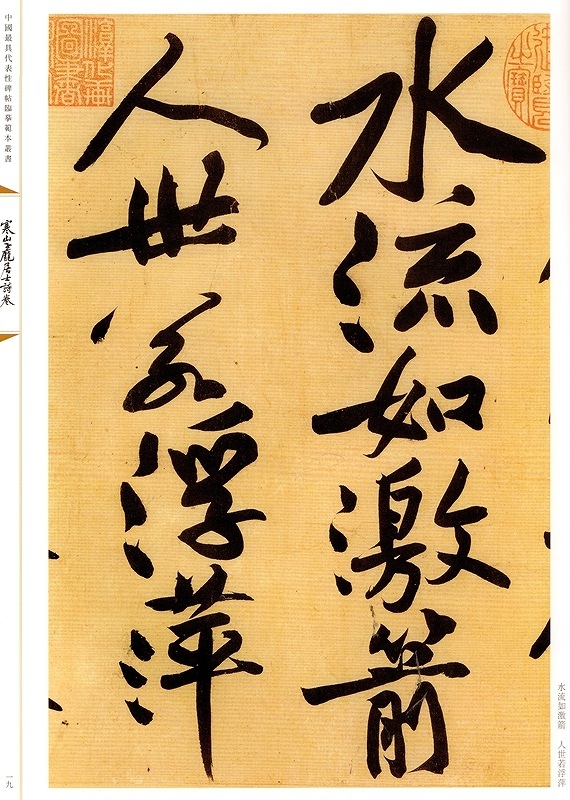 水流如激箭
人世若浮萍
水流如激箭 人世若浮萍
中國最具代表性碑帖臨摹範本叢書
寒山子龐居士詩卷
一九